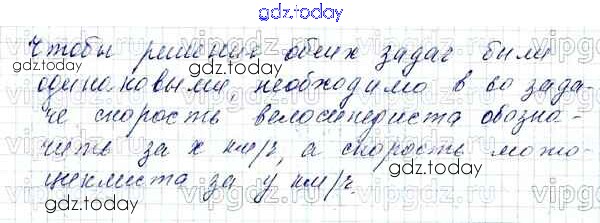 gdz.today
Чтобы решения обеих задач были
одинаковыми, необходимо в во зада-
че скорость велосипедиста обозна-
чить за x км/ч, а скорость мото-
циклиста за y км/ч.